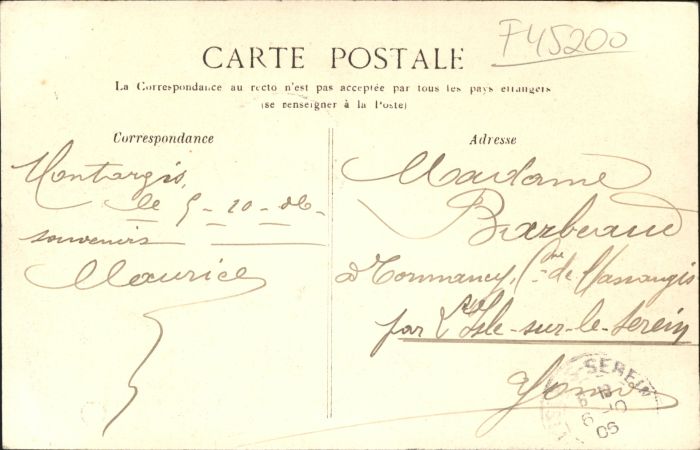 F45200
CARTE POSTALE
La Correspondance au recto n'est pas acceptée par tous les pays étrangers
(se renseigner à la Poste)
Correspondance
Montargis,
le 5 - 10 - 06 -
souvenirs
Maurice
Adresse
Madame
Barbeaud
à Tormancy, Cne de Massangis
par L'Isle-sur-le-Serein
Yonne
SEREIN
06